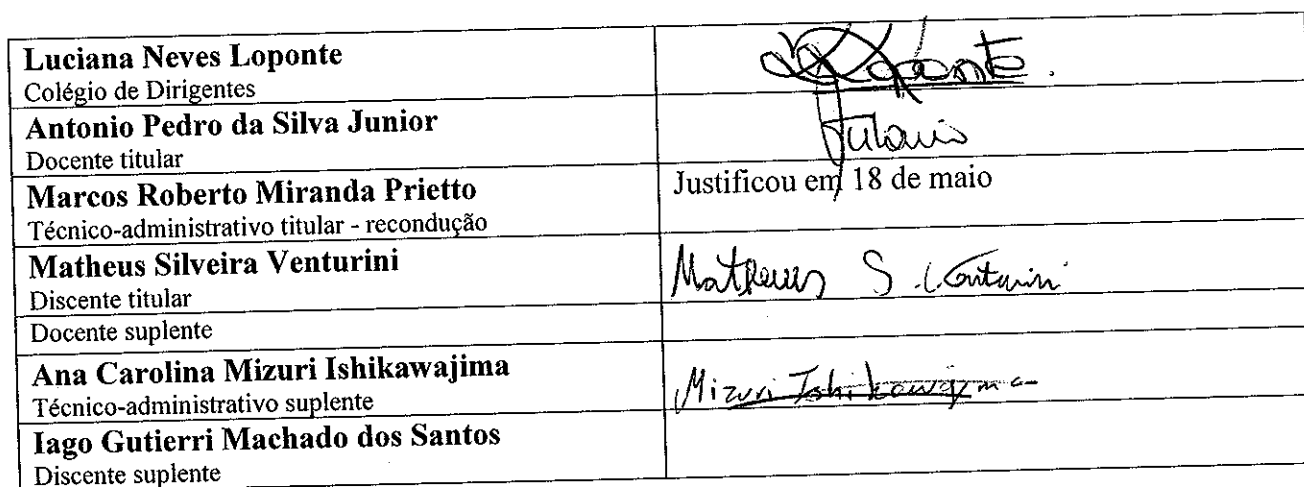 Luciana Neves Loponte
Colégio de Dirigentes
Loponte.
Antonio Pedro da Silva Junior
Docente titular
Marcos Roberto Miranda Prietto
Técnico-administrativo titular - recondução
Justificou em 18 de maio
Matheus Silveira Venturini
Discente titular
Matheus S. Venturini
Docente suplente
Ana Carolina Mizuri Ishikawajima
Técnico-administrativo suplente
Mizuri Ishikawajima
Iago Gutierri Machado dos Santos
Discente suplente